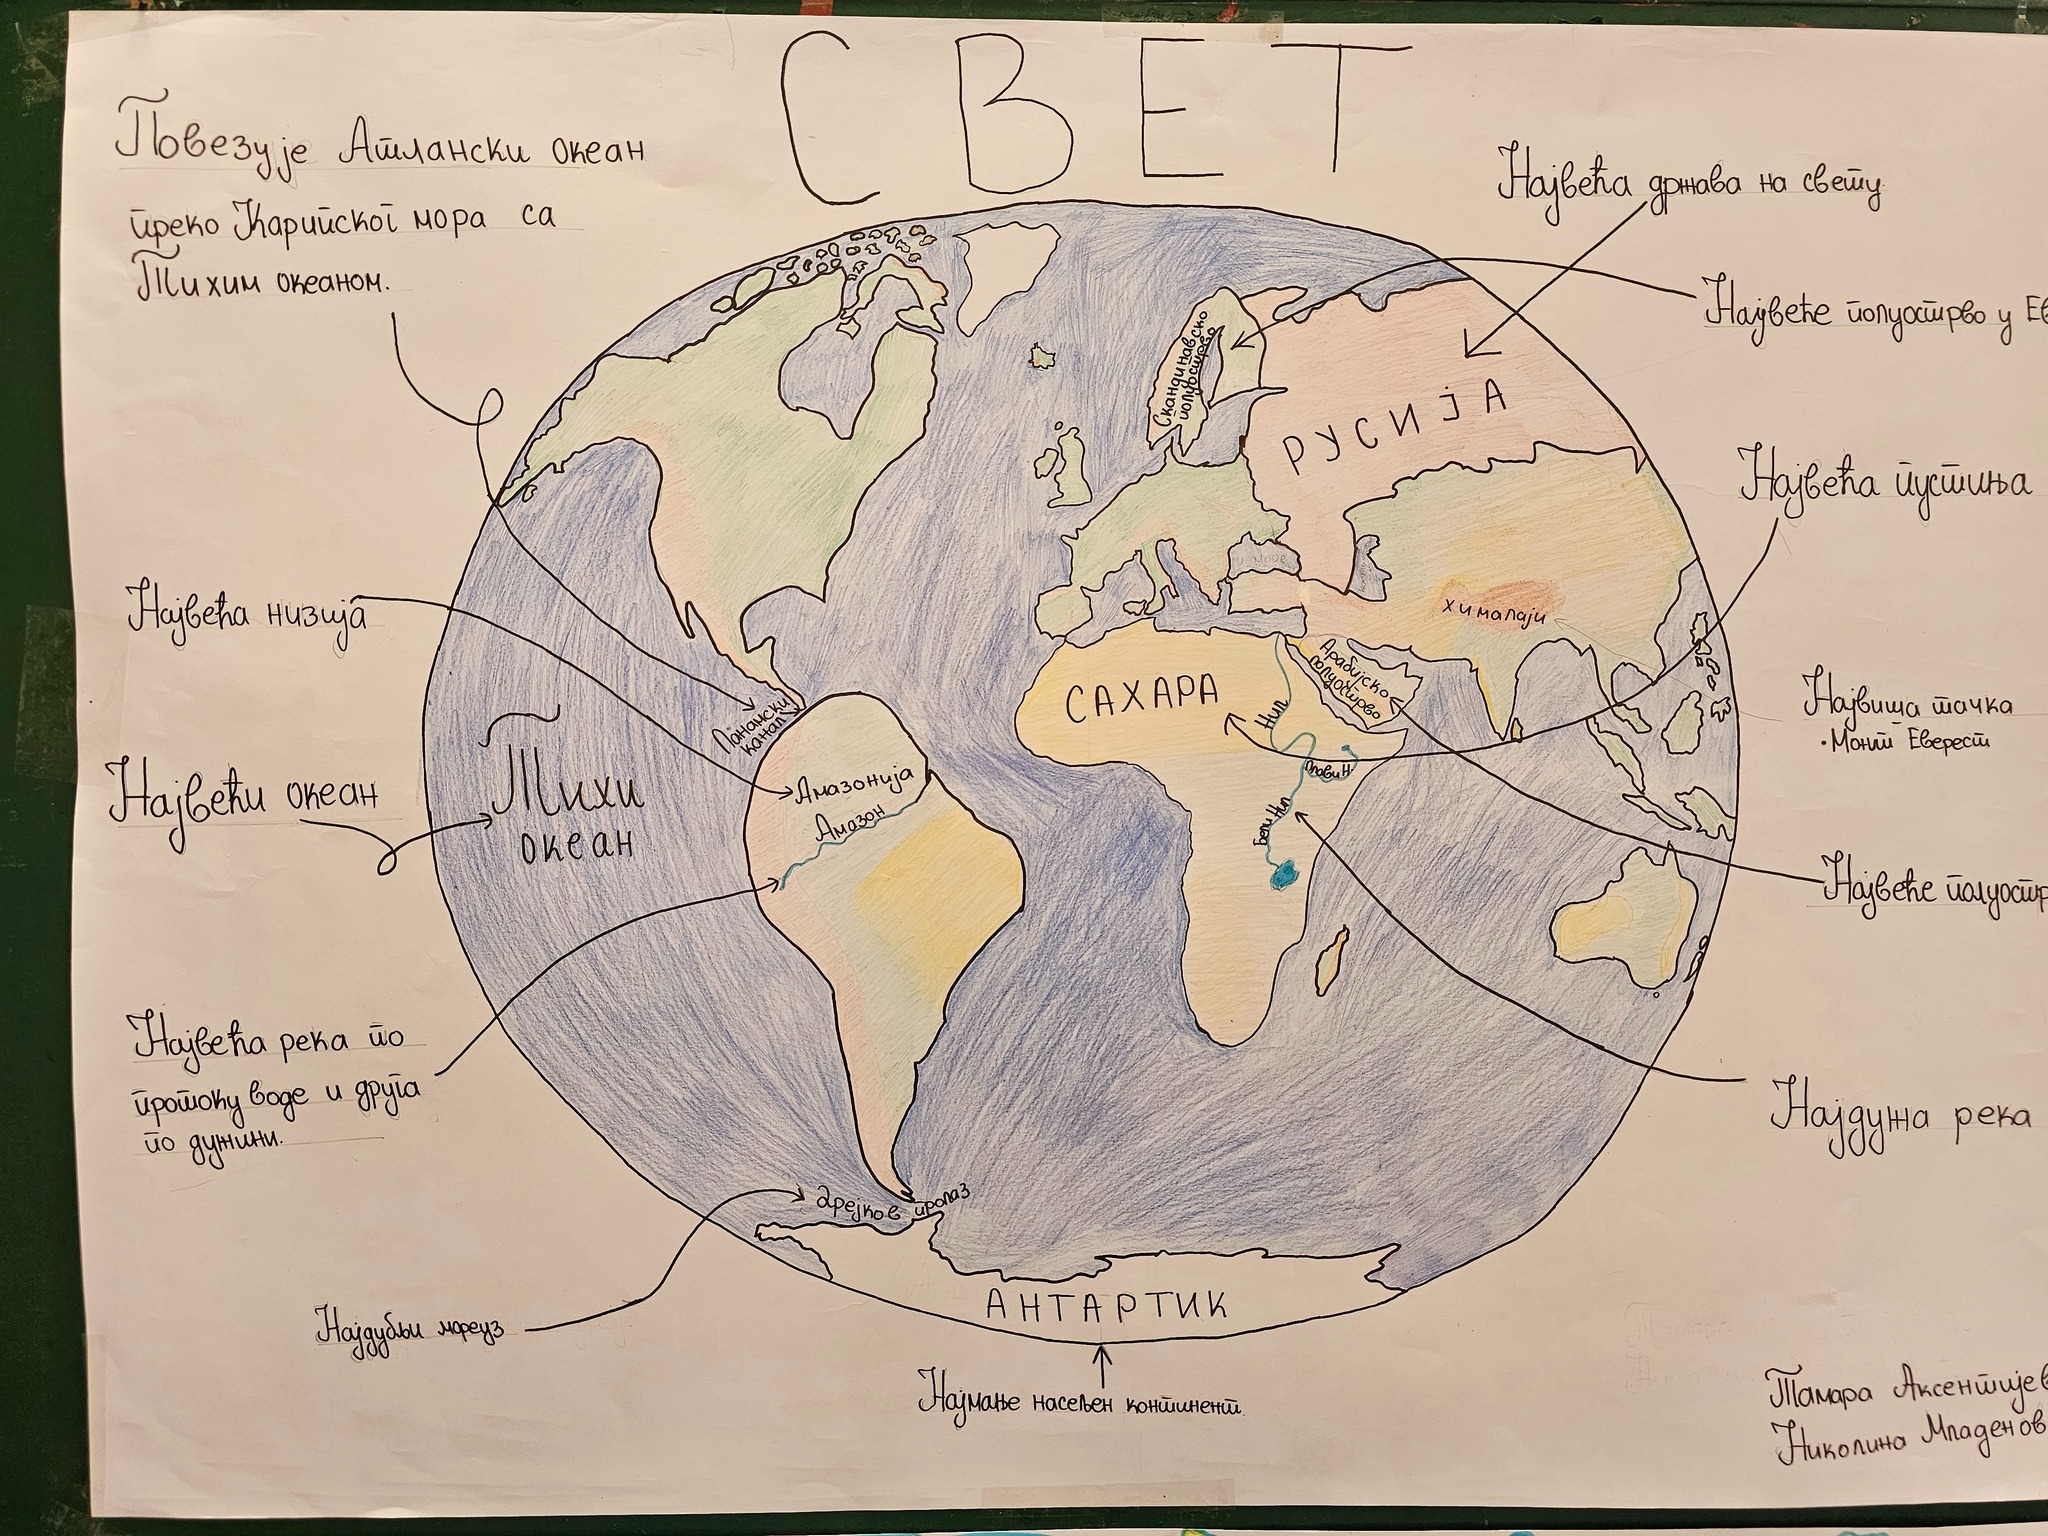 СВЕТ
Повезује Атлански океан
преко Карипског мора са
Тихим океаном.
Највећа низија
Највећи океан
Највећа река по
протоку воде и друга
по дужини.
Најдубљи мореуз
Највећа држава на свету
Највеће полуострво у
Највећа пустиња
Највиша тачка
• Монт Еверест
Највеће
Најдужа река
Скандинавско
полуострво
РУСИЈА
хималаји
Арабијско
полуострво
САХАРА
Нил
Плави Н
Бели Нил
Панамски
канал
Тихи
океан
Амазонија
Амазон
Дрејков пролаз
АНТАРТИК
Најмање насељен континент
Тамара
Николина